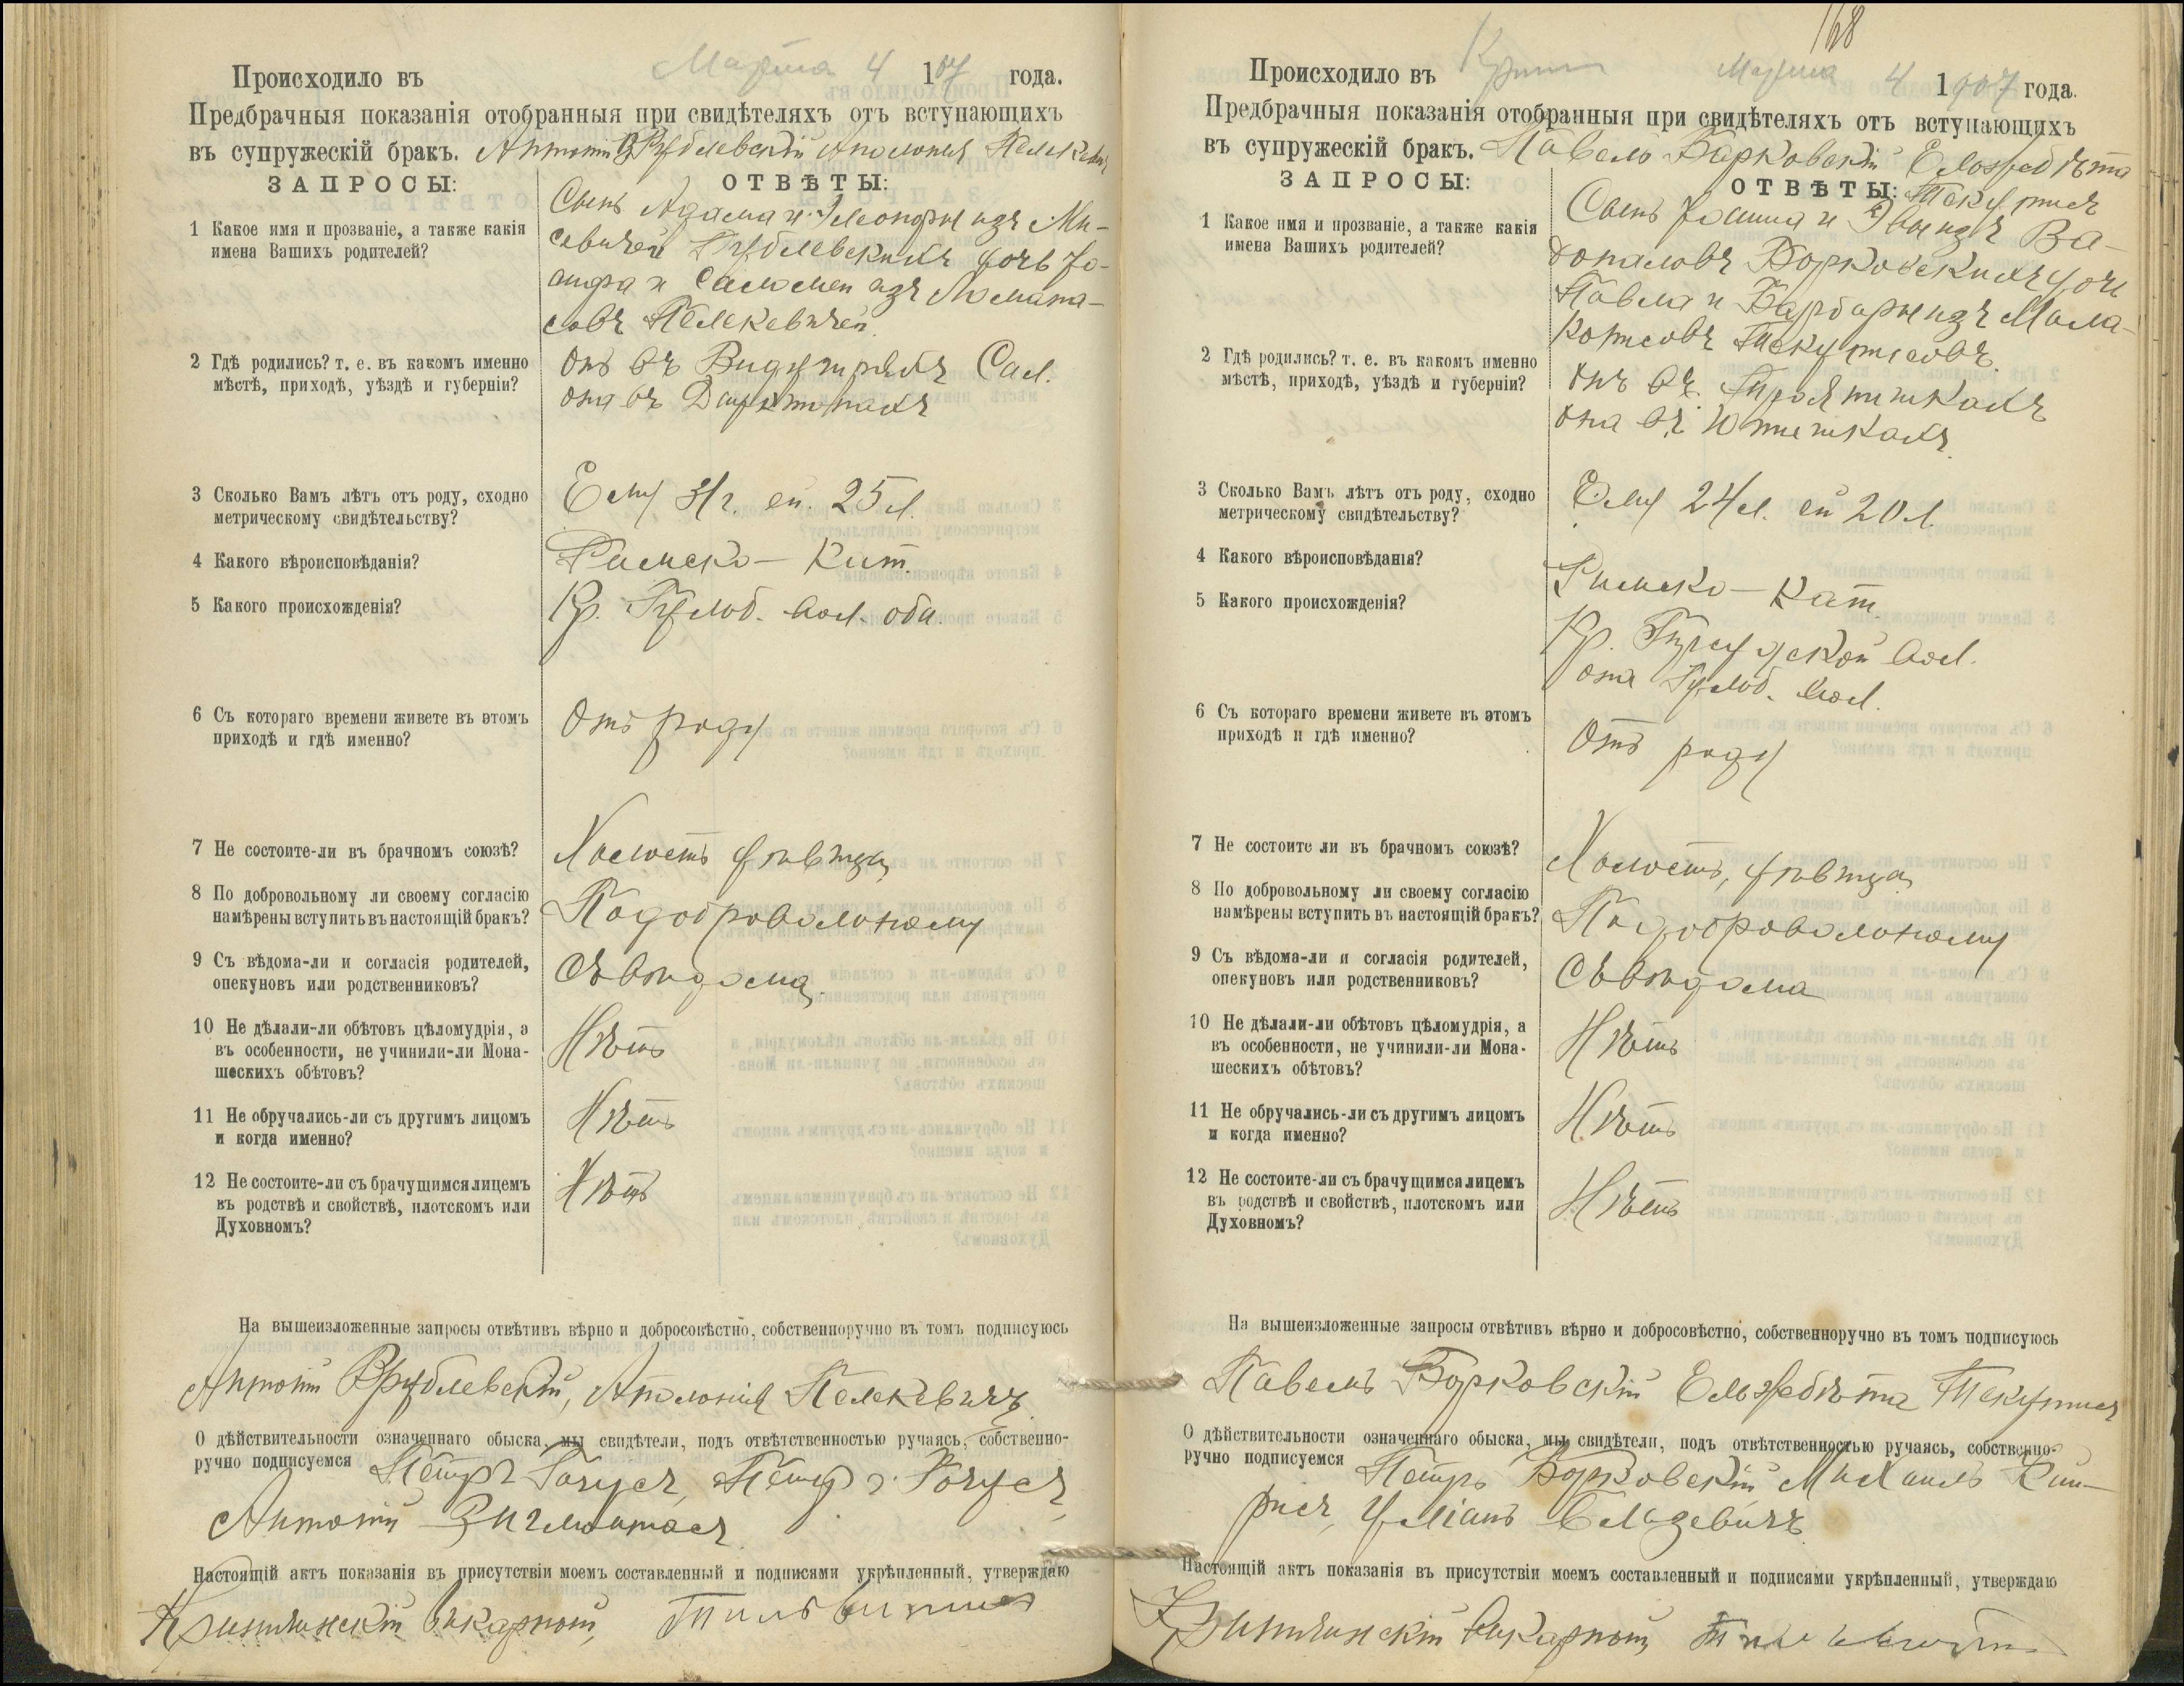 Происходило въ Марта 4 1907 года.
Предбрачныя показанія отобранныя при свидѣтеляхъ отъ вступающихъ
въ супружескій бракъ. Антоній Врублевскій Аполонія Пелекевичъ
ЗАПРОСЫ: ОТВѢТЫ:
1 Какое имя и прозваніе, а также какія
имена Вашихъ родителей?
Сынъ Адама и
Врублевскихъ дочь Іо-
сифа и Саломеи изъ
Пелекевичей
2 Гдѣ родились? т. е. въ какомъ именно
мѣстѣ, приходѣ, уѣздѣ и губерніи?
онъ въ
она въ
3 Сколько Вамъ лѣтъ отъ роду, сходно
метрическому свидѣтельству?
Ему 31 г. ей. 25 л.
4 Какого вѣроисповѣданія?
Римско-Кат.
5 Какого происхожденія?
Кр. вол. оба.
6 Съ котораго времени живете въ этомъ
приходѣ и гдѣ именно?
Отъ роду
7 Не состоите-ли въ брачномъ союзѣ?
Холостъ дѣвица
8 По добровольному ли своему согласію
намѣрены вступить въ настоящій бракъ?
По добровольному
9 Съ вѣдома-ли и согласія родителей,
опекуновъ или родственниковъ?
Съ вѣдома
10 Не дѣлали-ли обѣтовъ цѣломудрія, а
въ особенности, не учинили-ли Мона-
шескихъ обѣтовъ?
Нѣтъ
11 Не обручались-ли съ другимъ лицомъ
и когда именно?
Нѣтъ
12 Не состоите-ли съ брачущимся лицемъ
въ родствѣ и свойствѣ, плотскомъ или
Духовномъ?
Нѣтъ
На вышеизложенные запросы отвѣтивъ вѣрно и добросовѣстно, собственноручно въ томъ подписуюсь
Антоній Врублевскій, Аполонія Пелекевичъ
О дѣйствительности означеннаго обыска, мы свидѣтели, подъ отвѣтственностью ручаясь, собственно-
ручно подписуемся Петръ Петръ
Антоній
Настоящій актъ показанія въ присутствіи моемъ составленный и подписями укрѣпленный, утверждаю
викарный,
168
Происходило въ Марта 4 1907 года.
Предбрачныя показанія отобранныя при свидѣтеляхъ отъ вступающихъ
въ супружескій бракъ. Павелъ Борковскій Ельжебѣта
Текутисъ
ЗАПРОСЫ: ОТВѢТЫ:
1 Какое имя и прозваніе, а также какія
имена Вашихъ родителей?
Сынъ и Евы изъ
Борковскихъ дочь
Павла и Барбары изъ
Текутисовъ.
2 Гдѣ родились? т. е. въ какомъ именно
мѣстѣ, приходѣ, уѣздѣ и губерніи?
онъ въ
она въ
3 Сколько Вамъ лѣтъ отъ роду, сходно
метрическому свидѣтельству?
Ему 24 л. ей 20 л.
4 Какого вѣроисповѣданія?
Римско-Кат.
5 Какого происхожденія?
Кр. вол.
она вол.
6 Съ котораго времени живете въ этомъ
приходѣ и гдѣ именно?
Отъ роду
7 Не состоите ли въ брачномъ союзѣ?
Холостъ, дѣвица
8 По добровольному ли своему согласію
намѣрены вступить въ настоящій бракъ?
По добровольному
9 Съ вѣдома-ли и согласія родителей,
опекуновъ или родственниковъ?
Съ вѣдома
10 Не дѣлали-ли обѣтовъ цѣломудрія, а
въ особенности, не учинили-ли Мона-
шескихъ обѣтовъ?
Нѣтъ
11 Не обручались-ли съ другимъ лицомъ
и когда именно?
Нѣтъ
12 Не состоите-ли съ брачущимся лицемъ
въ родствѣ и свойствѣ, плотскомъ или
Духовномъ?
Нѣтъ
На вышеизложенные запросы отвѣтивъ вѣрно и добросовѣстно, собственноручно въ томъ подписуюсь
Павелъ Борковскій Ельжебѣта Текутисъ
О дѣйствительности означеннаго обыска, мы свидѣтели, подъ отвѣтственностью ручаясь, собственно-
ручно подписуемся Петръ Борковскій, Михаилъ
Юліанъ
Настоящій актъ показанія въ присутствіи моемъ составленный и подписями укрѣпленный, утверждаю
викарный